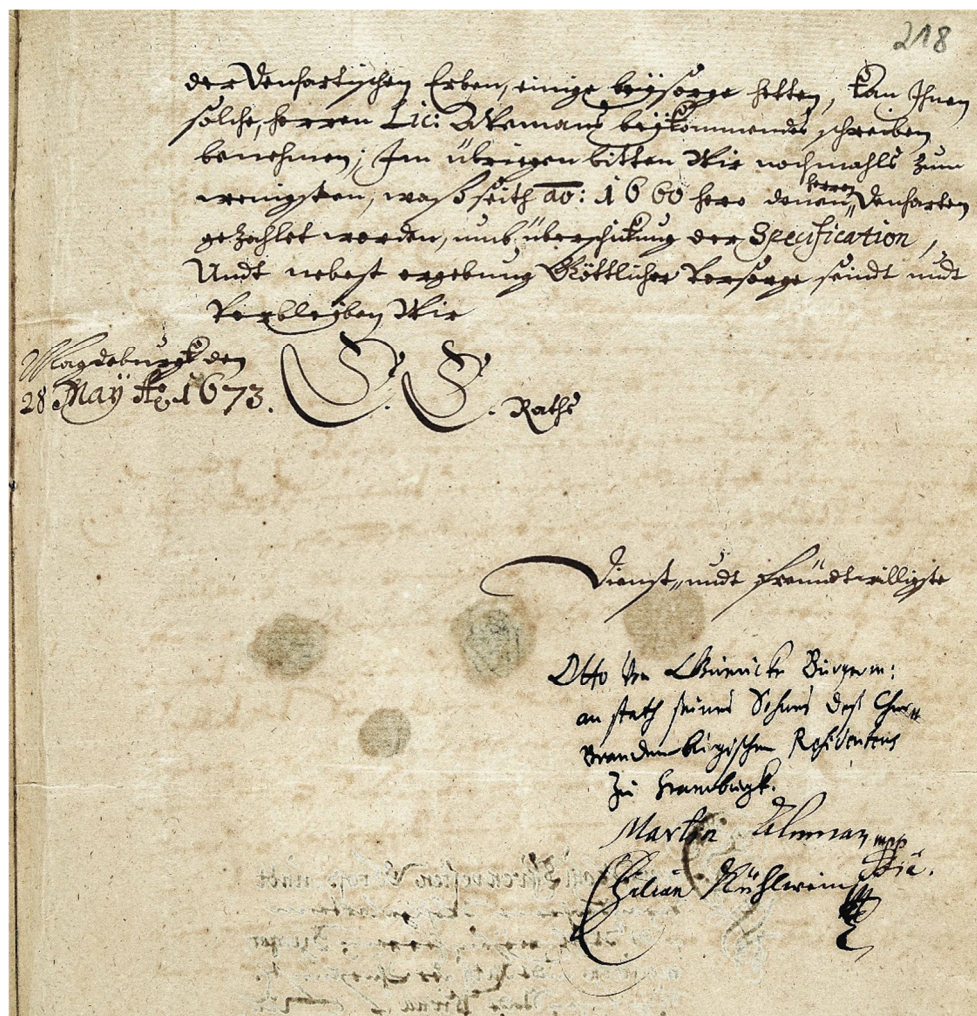 218
der Denhartischen Erben, einige beysorge hetten, kan Ihnen
solche, Herren Lic: Alemans beykommendes schreiben
benehmen; Im übrigen bitten Wir nochmahls zum
wenigsten, waß seith ao: 1660 hero denen herren Denharten
gezahlet worden, umb überschickung der Specification,
Undt nebest ergebung Göttlicher Vorsorge seindt undt
Verbleyben Wir
Magdeburgk den
28 May Ao. 1673.
E. E. Raths
Dienst- undt freundtwilligste
Otto von Guericke Bürgerm:
an stath seines Sohnes deß Chur-
Brandenburgischen Residentens
zu Hamburgk.
Martin Aleman mpp
Chilian Kühlewein